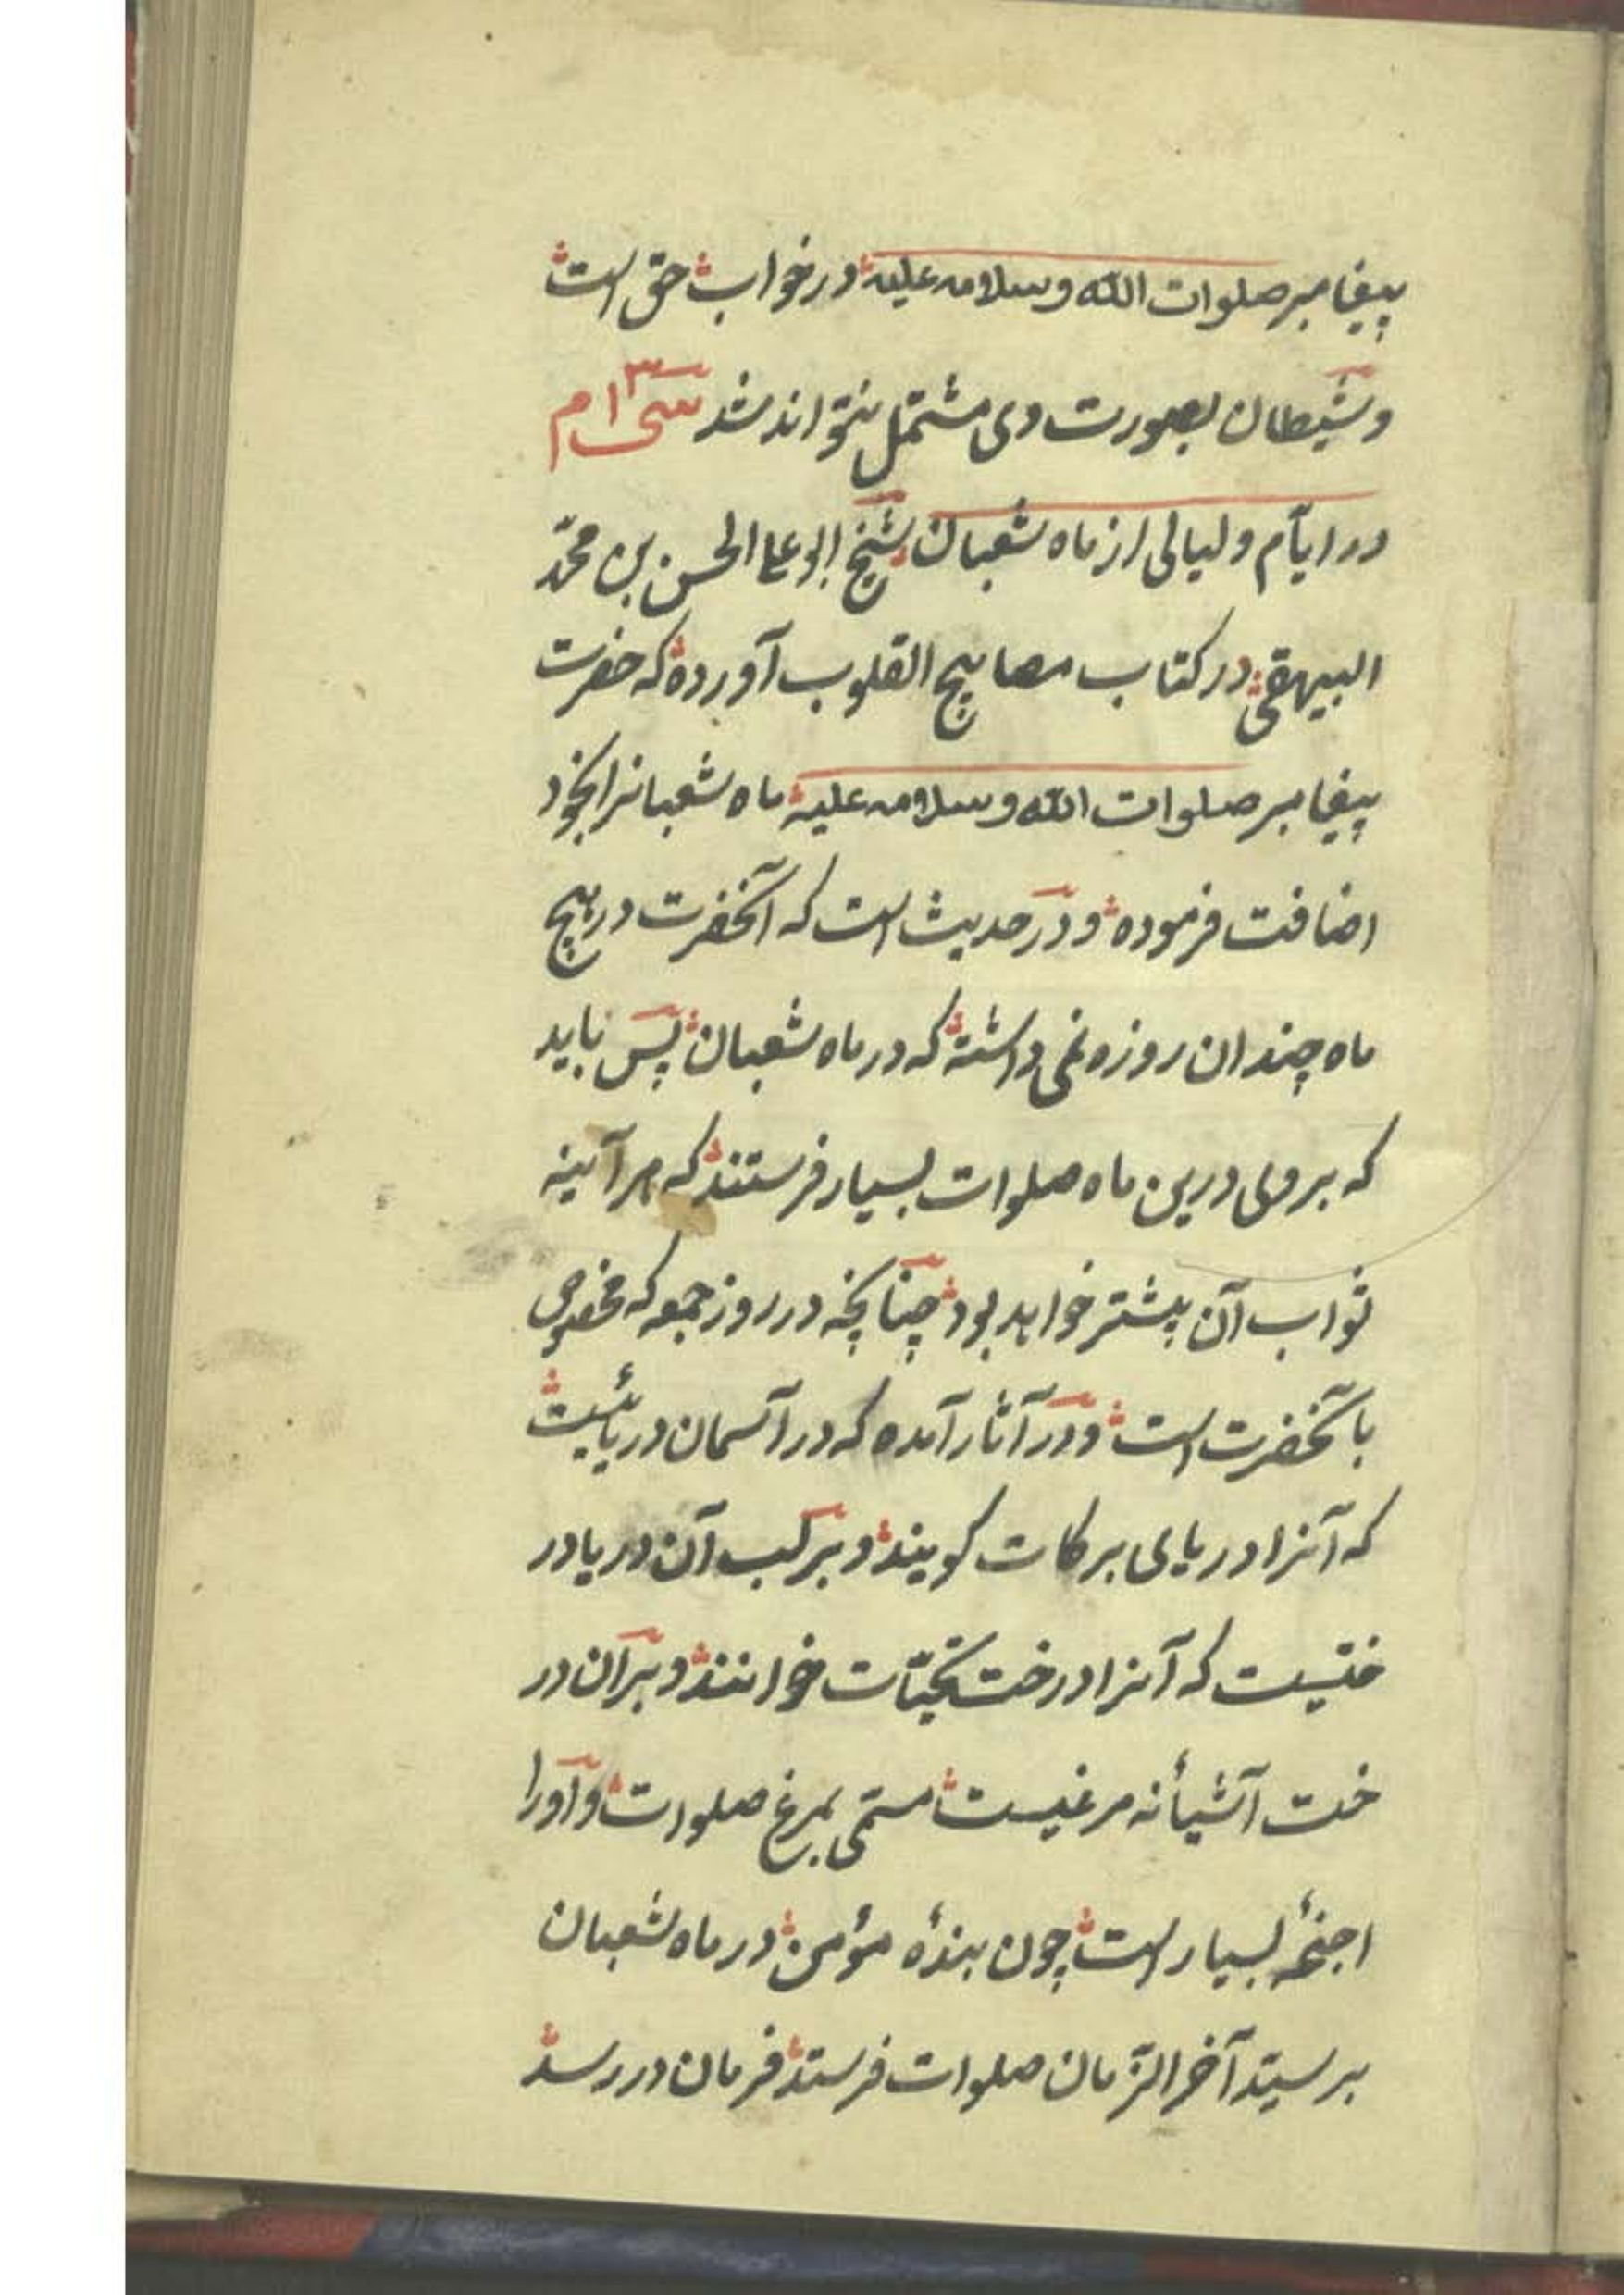 پیغامبر صلوات الله وسلامه علیه در خواب حق است
و شیطان بصورت وی مشتمل نتواند شد سی ۳۱ م
در ایّام و لیالی از ماه شعبان شیخ ابو علی الحسن بن محمّد
البیهقی در کتاب مصابیح القلوب آورده که حضرت
پیغامبر صلوات الله وسلامه علیه ماه شعبانرا بخود
اضافت فرموده و در حدیث است که آنحضرت در هیچ
ماه چندان روزه نمی داشته که در ماه شعبان پس باید
که بر وی درین ماه صلوات بسیار فرستند که هر آینه
ثواب آن بیشتر خواهد بود چنانچه در روز جمعه که مخصوص
بآنحضرت است و در آثار آمده که در آسمان دریائیست
که آنرا دریای برکات کویند و بر لب آن دریا در
ختیست که آنرا درخت تحیّات خوانند و بر آن در
خت آشیانه مرغیست مسمّی بمرغ صلوات و او را
اجنحهٔ بسیار است چون بندهٔ مؤمن در ماه شعبان
بر سیّد آخر الزّمان صلوات فرستد فرمان در رسد